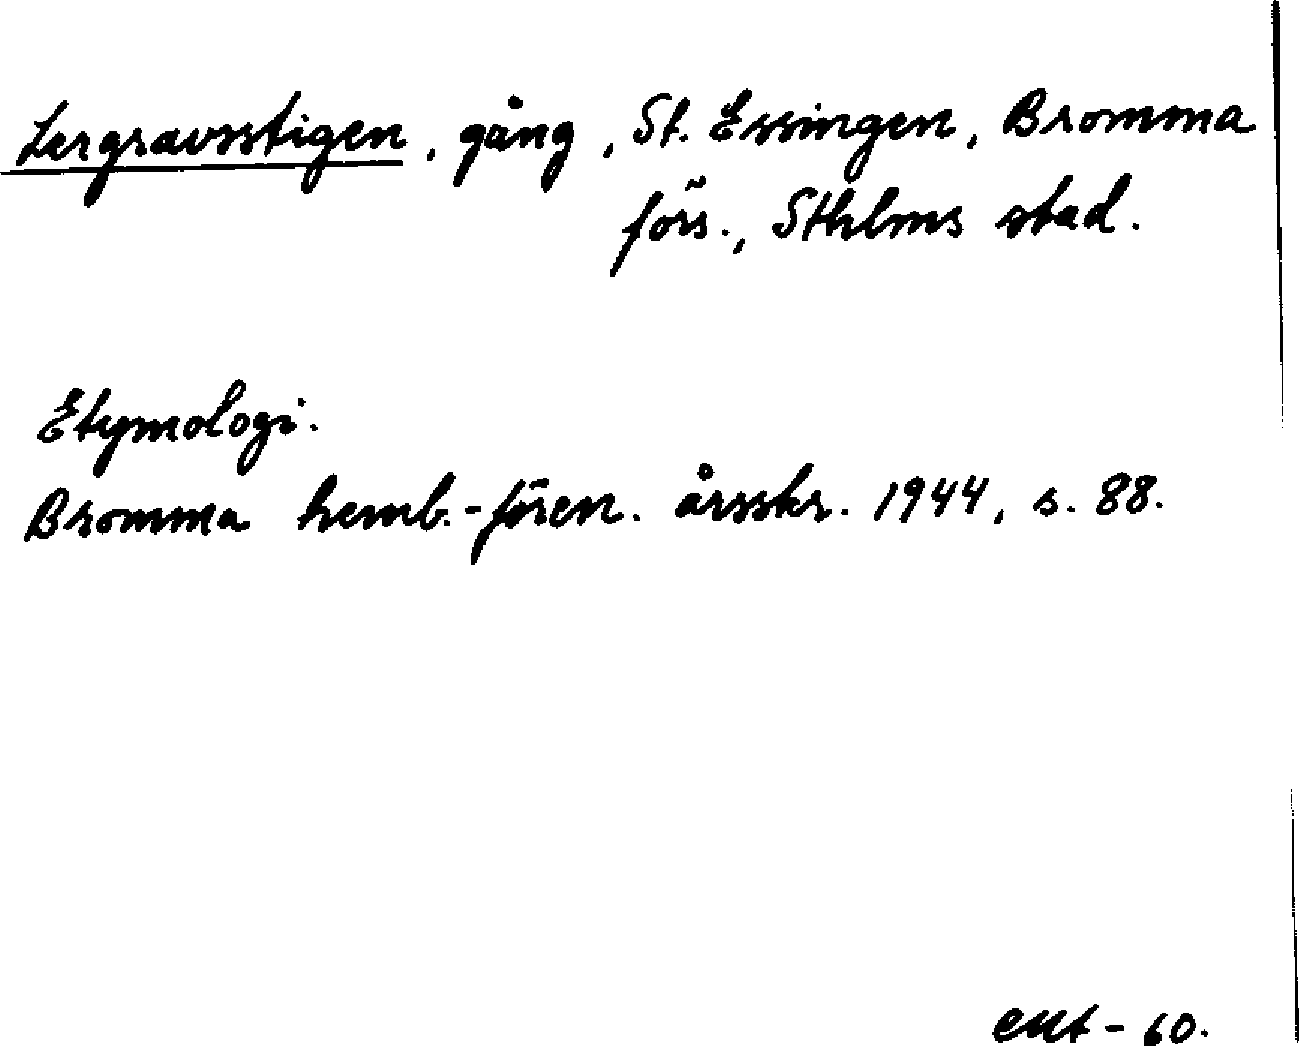 Lergravsstigen, gång, St. Essingen, Bromma
förs., Sthlms stad.
Etymologi.
Bromma hemb.-fören. årsskr. 1944, s. 88.
-60.